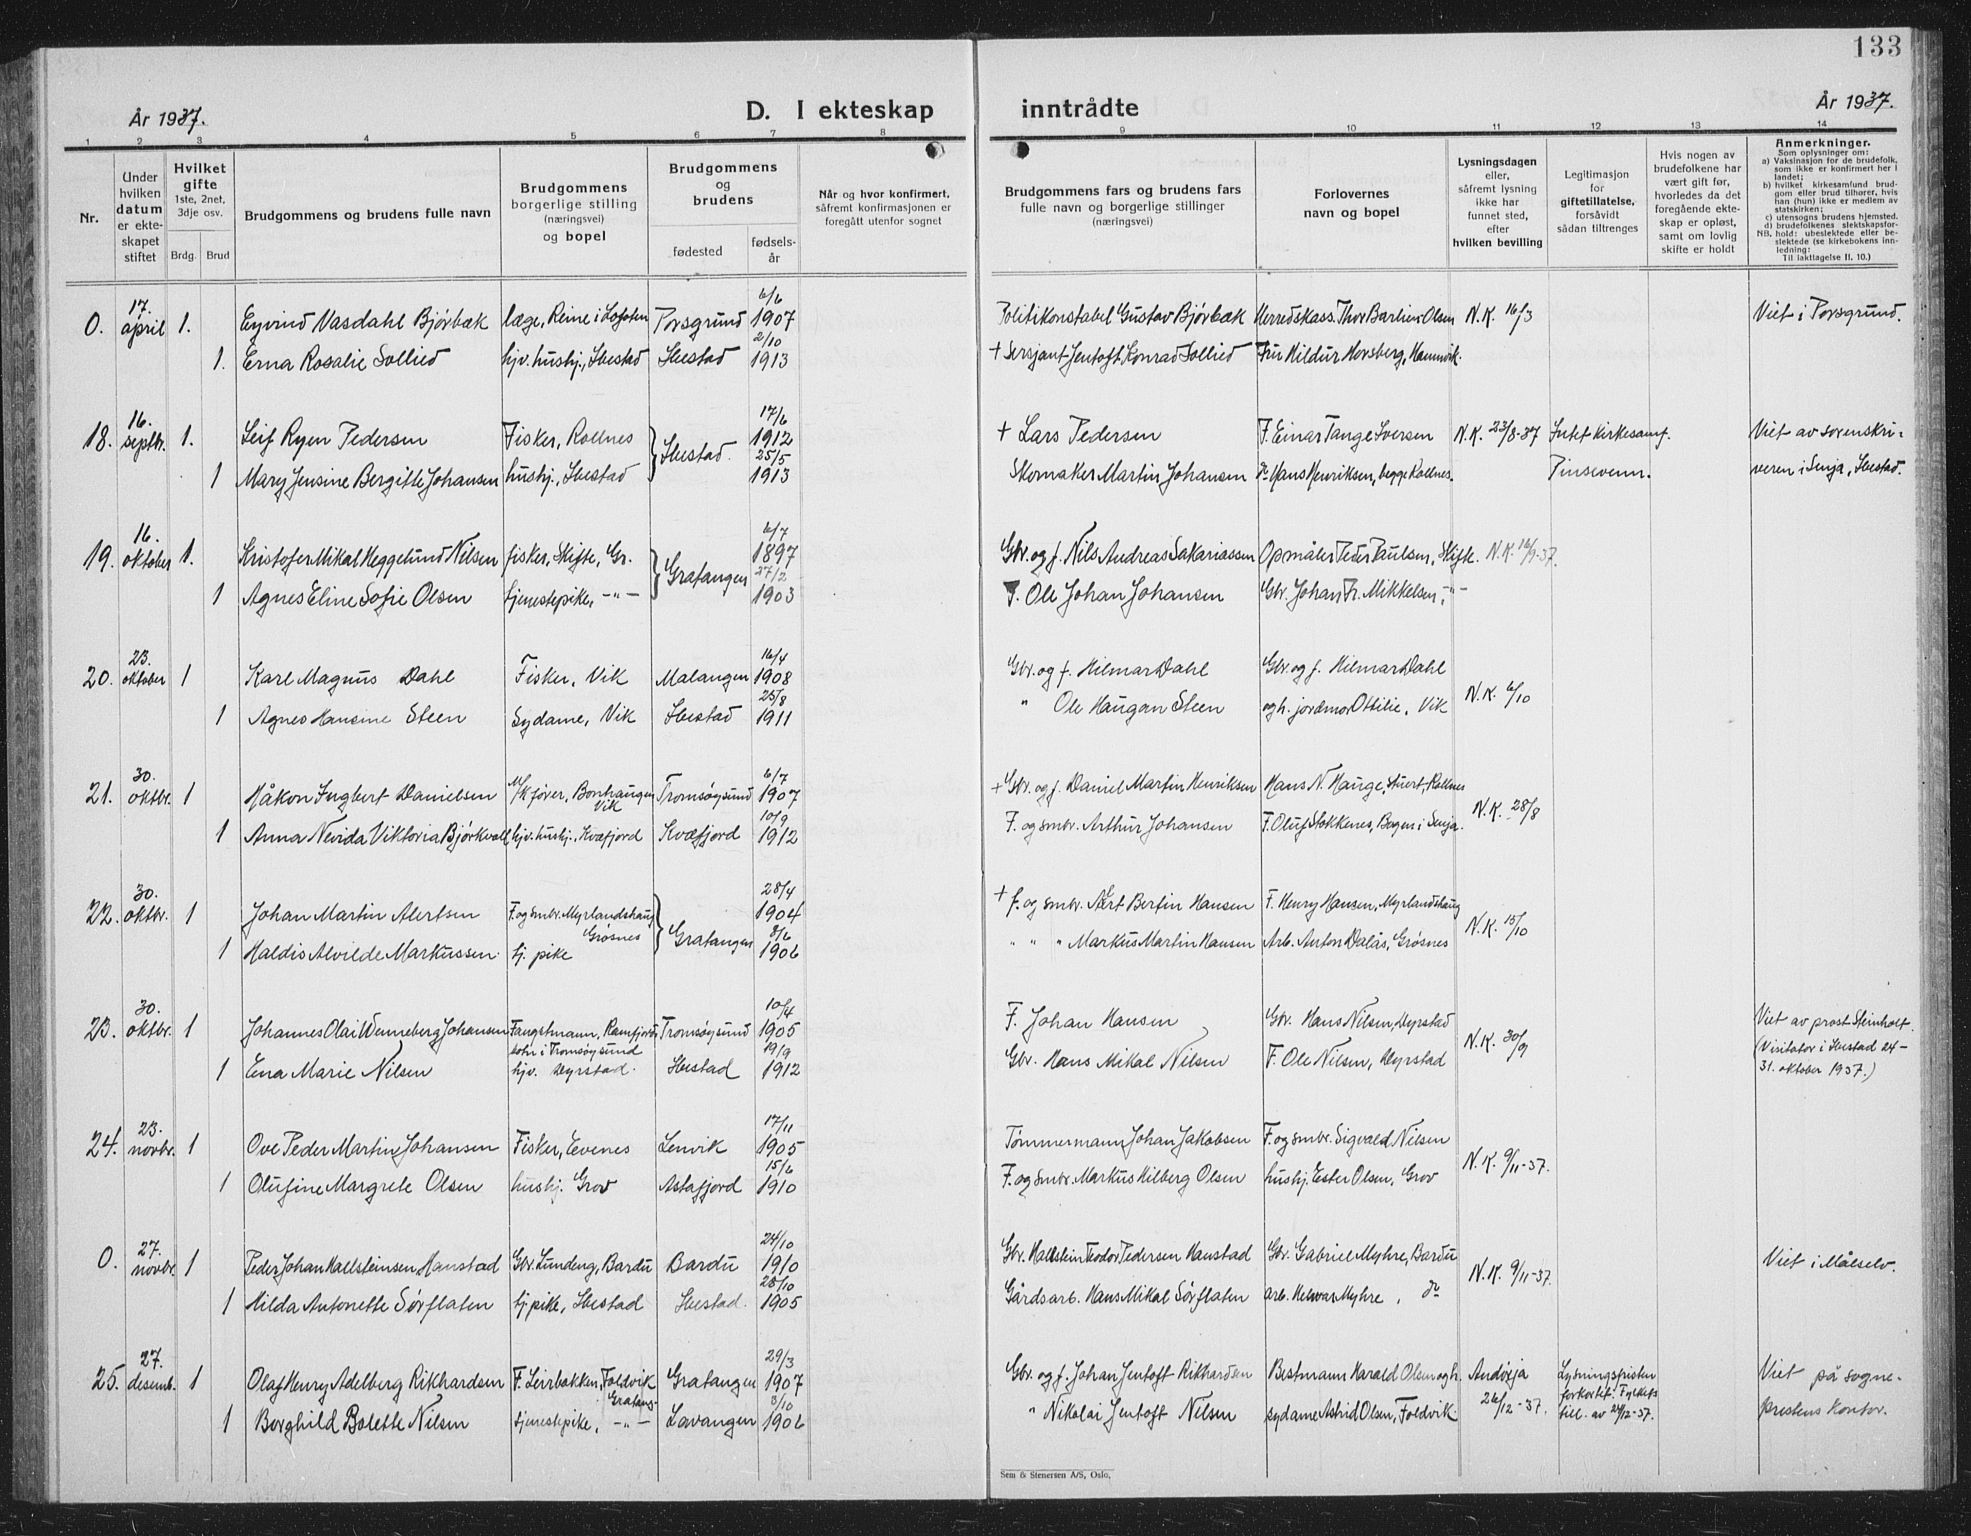 133
År 1937.
D. I ekteskap inntrådte
År 1937.
1 2 3 4 5 6 7 8 9 10 11 12 13 14
Nr.
Under hvilken datum er ekteskapet stiftet
Hvilket gifte 1ste, 2net, 3dje osv.
Brdg. Brud
Brudgommens og brudens fulle navn
Brudgommens borgerlige stilling (næringsvei) og bopel
Brudgommens og brudens
fødested
fødselsår
Når og hvor konfirmert, såfremt konfirmasjonen er foregått utenfor sognet
Brudgommens fars og brudens fars fulle navn og borgerlige stillinger (næringsvei)
Forlovernes navn og bopel
Lysningsdagen eller, såfremt lysning ikke har funnet sted, efter hvilken bevilling
Legitimasjon for giftetillatelse, forsåvidt sådan tiltrenges
Hvis nogen av brudefolkene har vært gift før, hvorledes da det foregående ekteskap er opløst, samt om lovlig skifte er holdt
Anmerkninger.
Som oplysninger om:
a) Vaksinasjon for de brudefolk, som ikke er konfirmert her i landet;
b) hvilket kirkesamfund brudgom eller brud tilhører, hvis han (hun) ikke er medlem av statskirken;
c) utensogns brudens hjemsted.
d) brudefolkenes slektskapsforhold: ubeslektede eller beslektede (se kirkebokens innledning:
NB.
Til iakttagelse II. 10.)
0. 17. april 1. Eyvind Vasdahl Bjórbæk læge, Reine i Lofoten Porsgrund 6/6 1907 Politikonstabel Gustav Bjórbæk Herredskass. Thor Barlien-Olsen N.K. 16/3 Viet i Porsgrund.
1. Erna Rosalie Sollied hjv. hushj., Ibestad Ibestad 2/10 1913 + Sersjant Jentoft Konrad Sollied Fru Hildur Horsberg, Hamnvik.
18. 16. septbr. 1. Leif Ryen Pedersen Fisker, Rollnes Ibestad. 17/6 1912 + Lars Pedersen F. Einar Tange Iversen N.K. 23/8-37 Intet kirkesamf. Viet av sorenskri-
1 Mary Jensine Bergitte Johansen hushj., Ibestad 25/5 1913 Skomaker Martin Johansen do Hans Henriksen, begge Rollnes. Pinsevenn. veren i Senja, Ibestad.
19. 16. oktober 1. Kristofer Mikal Heggelund Nilsen fisker, Skifte, Gr. Gratangen 6/7 1897 Gbr. og f. Nils Andreas Sakariassen Opmåler Peder Paulsen, Skifte. N.K. 16/9-37.
1 Agnes Eline Sofie Olsen tjenestepike, -"- 27/2 1903 F. Ole Johan Johansen Gbr. Johan Fr. Mikkelsen, -"-
20. 23. oktober 1 Karl Magnus Dahl Fisker, Vik Malangen 16/4 1908 Gbr. og f. Hilmar Dahl Gbr. og f. Hilmar Dahl N.K. 6/10
1 Agnes Hansine Steen Sydame, Vik Ibestad 25/8 1911 " Ole Haugan Steen og h. jordmor Ottilie, Vik
21. 30. oktbr. 1 Håkon Ingbert Danielsen M/K fører, Bonhaugen Vik Tromsøysund 6/7 1907 + Gbr. og f. Daniel Martin Henriksen Hans N. Hauge, Stuert, Rollnes N.K. 28/8
1 Anna Nevida Viktoria Bjórkvoll hjv. hushj., Kvæfjord Kvæfjord 10/9 1912 F. og smbr. Arthur Johansen F. Oluf Stokkenes, Bogen i Senja.
22. 30. oktbr. 1 Johan Martin Alertsen F. og smbr. Myrlandshaug Grøsnes Gratangen 28/4 1904 + f. og smbr. Alert Bertin Hansen F. Henry Hansen, Myrlandshaug N.K. 15/10
1 Haldis Alvilde Markussen tj. pike 8/6 1906 " " " Markus Martin Hansen Arb. Anton Dalås, Grøsnes
23. 30. oktbr. 1 Johannes Olai Wenneberg Johansen Fangstmann, Ramfjords botn i Tromsøysund Tromsøysund 10/4 1905 F. Johan Hansen Gbr. Hans Nilsen, Dyrstad N.K. 30/9 Viet av prost Steinholt.
(Visitator i Ibestad 24-
31. oktober 1937.)
1 Ena Marie Nilsen hjv. Dyrstad. Ibestad 19/9 1912 Gbr. Hans Mikal Nilsen F. Ole Nilsen, Dyrstad
24. 23. novbr. 1 Ove Peder Martin Johansen Fisker, Evenes Lenvik 17/11 1905 Tømmermann Johan Jakobsen F. og smbr. Sigvald Nilsen N.K. 9/11-37.
1 Olufine Margrete Olsen hushj. Grov Astafjord 15/6 1910 F. og smbr. Markus Hilberg Olsen hushj. Ester Olsen, Grov
0. 27. novbr. 1 Peder Johan Hallsteinsen Hanstad Gbr. Lundeng, Bardu Bardu 24/10 1910 Gbr. Hallstein Teodor Pedersen Hanstad Gbr. Gabriel Myhre, Bardu N.K. 9/11-37. Viet i Målselv.
1 Hilda Antonette Sørflaten tj. pike, Ibestad Ibestad. 28/10 1905 Gårdsarb. Hans Mikal Sørflaten arb. Helmar Myhre, do
25. 27. desemb. 1 Olaf Henry Adelberg Rikhardsen F. Leirbakken, Foldvik Gratang- Gratangen 29/3 1907 Gbr. og f. Johan Jentoft Rikhardsen Bestmann Harald Olsen og h. Andøja 26/12-37. Lysningsfristen Viet på sogne-
forkortet. Fylkets
1 Borghild Bolette Nilsen tjenestepike, -"- Lavangen 3/10 1906 " Nikolai Jentoft Nilsen sydame Astrid Olsen, Foldvik till. av 24/12-37. prestens kontor.
Sem & Stenersen A/S, Oslo.